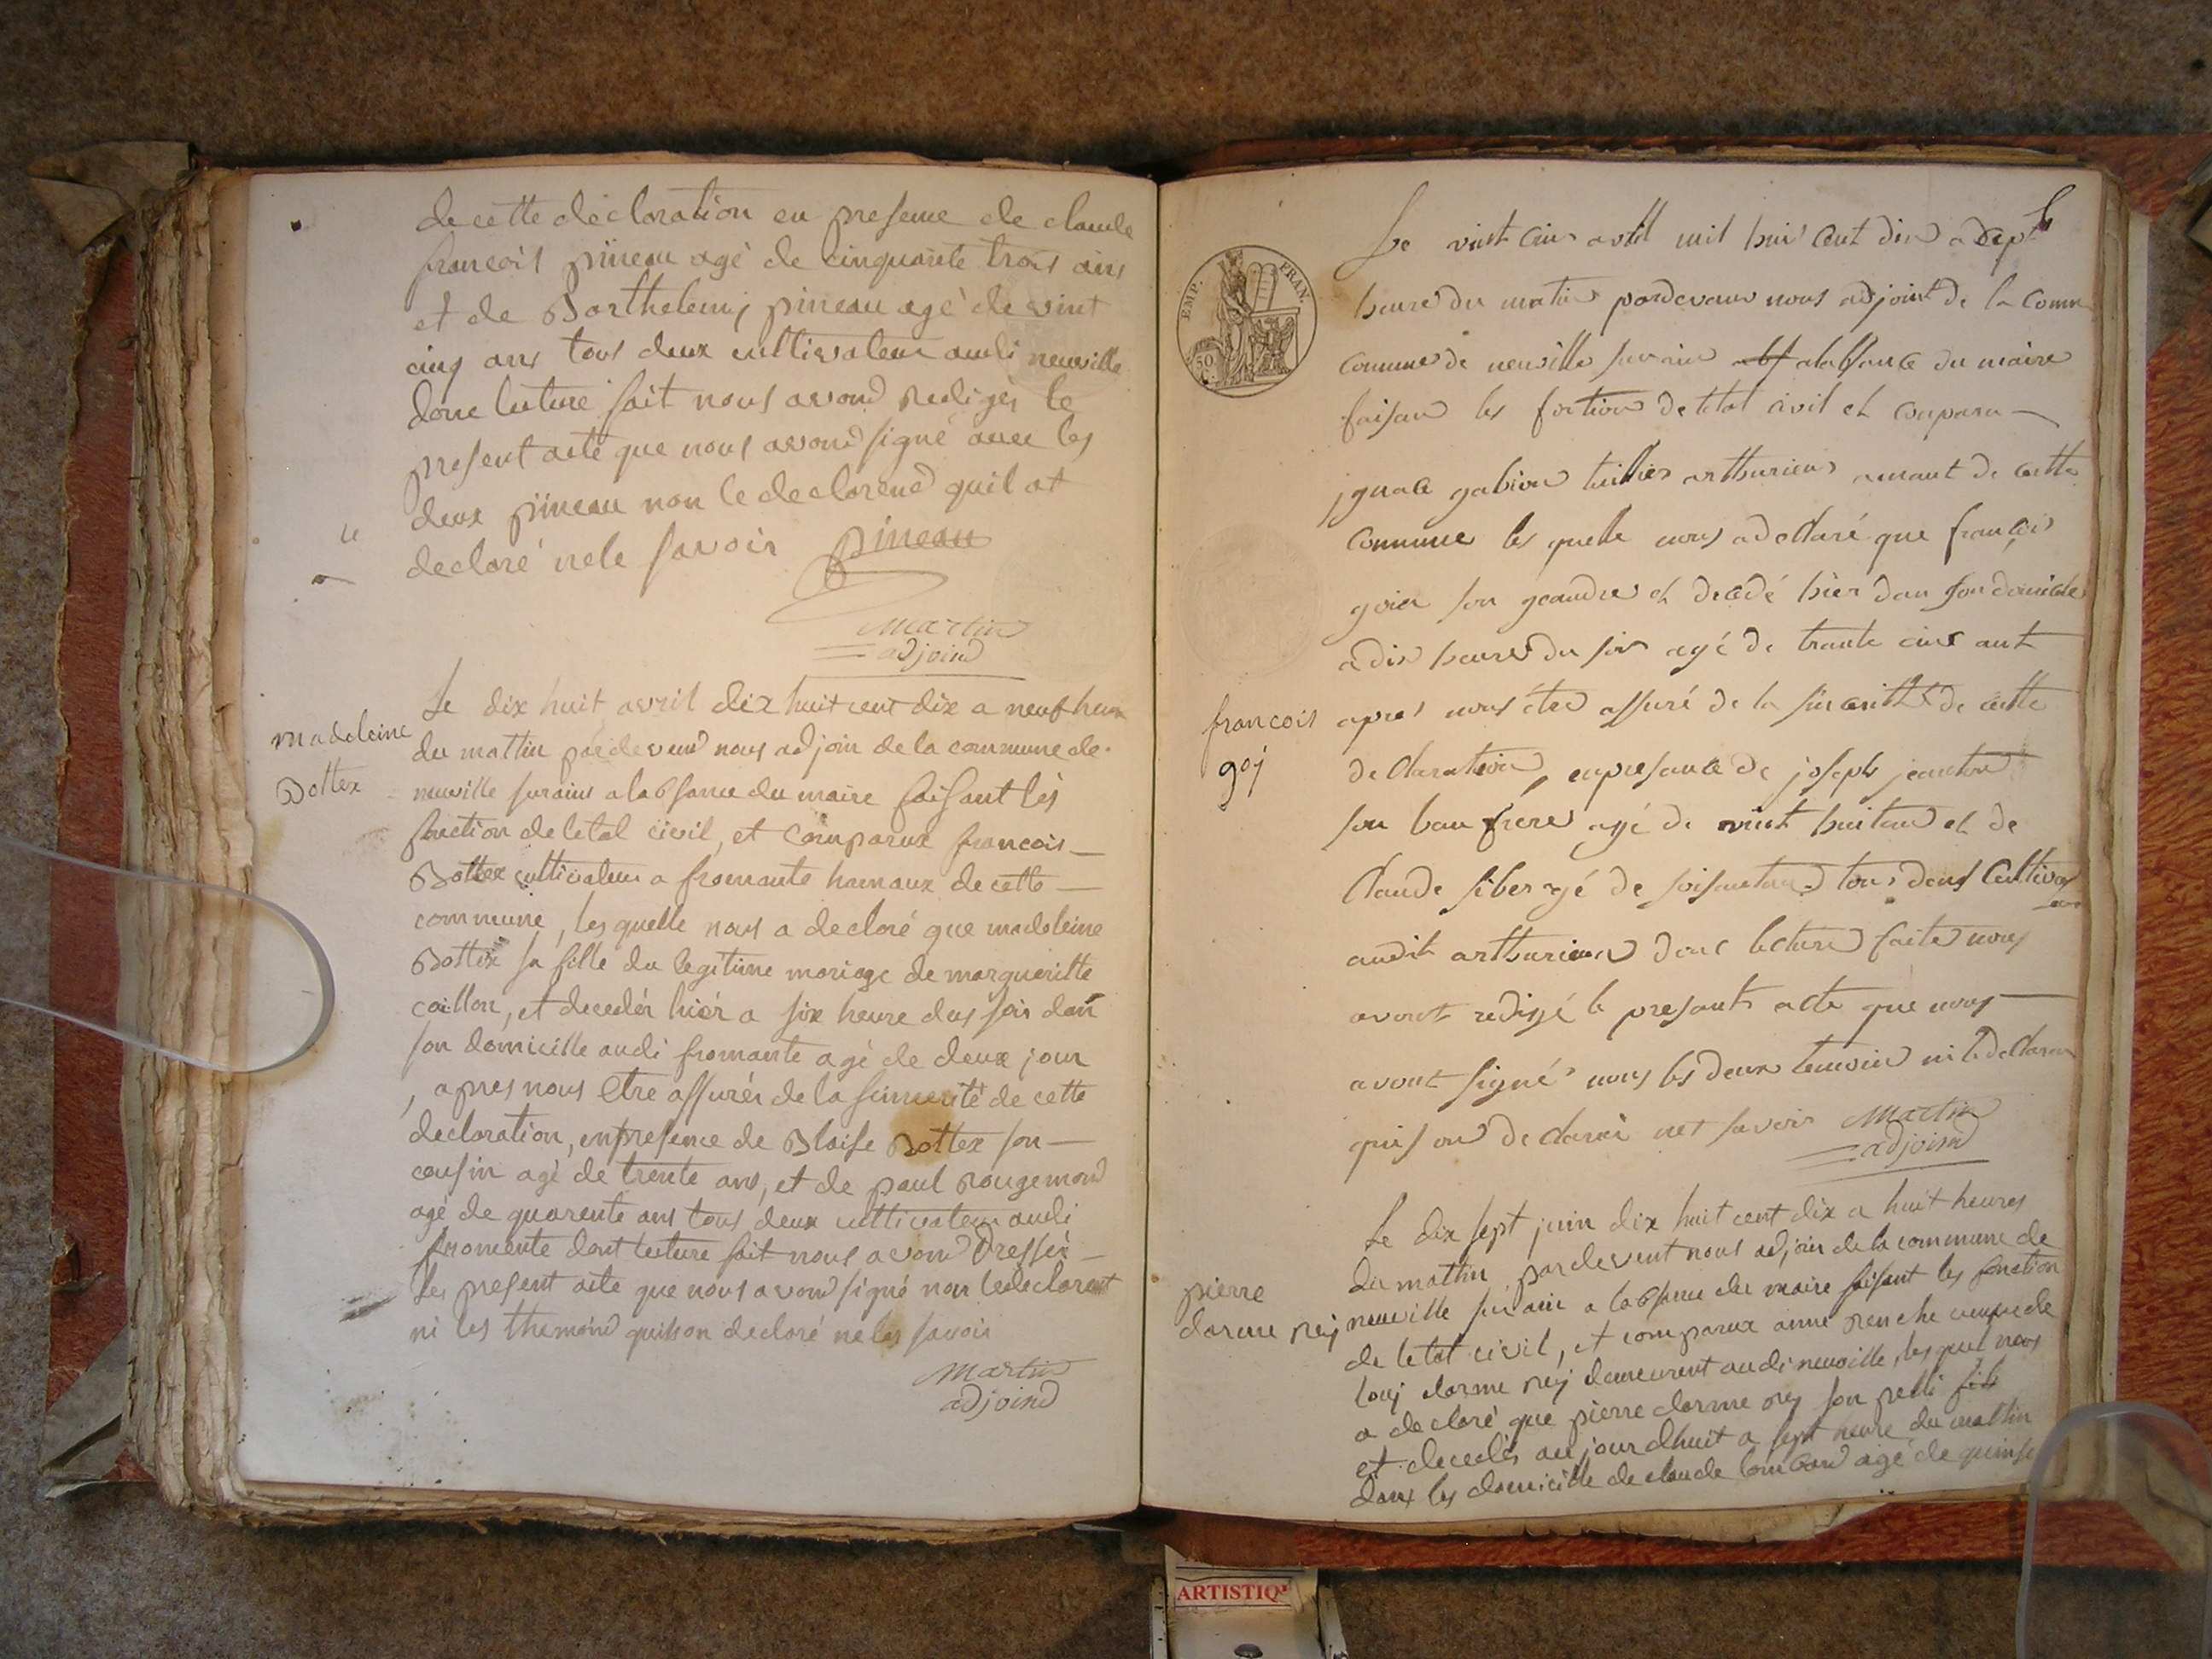 de cette declaration en presence de claude
francois pineau agé de cinquante trois ans
et de Barthelemj pineau agé de vint
cinq ans tous deux cultivateur audi neuville
donc luture fait nous avond redigér le
present acte que nous avond signé avec les
deux pineau non le declarend quil at
declaré nele savoir pineau
martin
adjoind
madeleine
Bottex
Le dix huit avril dix huit cent dix a neuf heur
du mattin pardevend nous adjoin de la commune de
neuville surains a labsance du maire faisant les
fonction de letat civil, et comparux francois
Bottex cultivateur a fromante hamaux de cette
commune, les quelle nous a declaré que madeleine
Bottex sa fille du legitime mariage de margueritte
caillon, et decedér hiér a six heure du soir dan
son domicille audi fromante agé de deux jour
, apres nous etre assurér de la sincerité de cette
declaration, enpresence de Blaise Bottex son
cousin agé de trente ans, et de paul rougemond
agé de quarente ans tous deux cultivateur audi
fromente dont luture fait nous avond dressér
les present acte que nous avond signé non ledeclarent
ni les themoind quilson declaré nele savoir
martin
adjoind
EMP. FRAN.
50
Le vint cinc avril mil hui cent dis a sept
heure du matin pardevant nous adjoint de la comm
commune de neuville surain alabsance du maire
faisan les fontion de letat civil et conparu
jgnace gabion tuilier arthurieus de cette
commune les quelle nous a declaré que françois
goier son geandre et decedé hier dan son domicile
a dis heures du soir agé de trante cinc ant
francois
goj
apres nous étre assuré de la sinceritté de cette
declaration, enpresance de joseph jeanton
son bau frere agé de vint huitan et de
Claude siber agé de soisantan tous deus Cultiva
audit arthurieus donc lecture faite nous
avont redigé le presant acte que nous
avont signé nous les deux temoin ni le declaran
quis on declaré net savoir martin
adjoind
pierre
darme rej
Le dix sept juin dix huit cent dix a huit heures
du mattin pardevent nous adjoin de la commune de
neuville surain a labsence du maire faisant les fonction
de letat civil, et comparux anne renche veuve de
louj darme rej demeurent audi neuville, les quel nous
a declaré que pierre darme rej son petti fils
et decedér aujourdhuit a sept heure du mattin
dans les domicille de claude lombard agé de quinse
ARTISTIQ